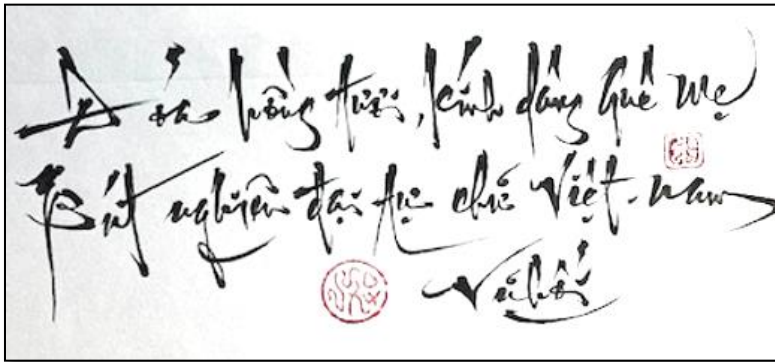 Đóa hồng tươi, kính dâng Quê Mẹ
Bút nghiên đại tự chữ Việt-nam
Vũ Hối